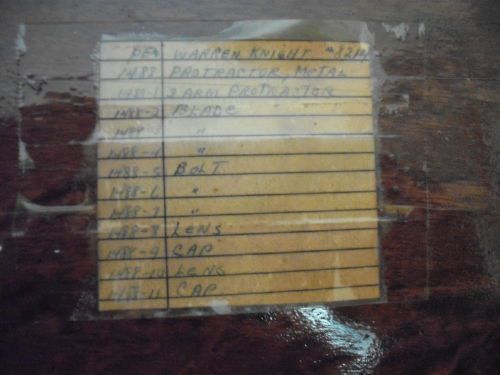 PE* WARREN KNIGHT #8214
1488 PROTRACTOR, METAL
1488-1 3 ARM PROTRACTOR
1488-2 BLADE
1488-3 "
1488-4 "
1488-5 BOLT
1488-6 "
1488-7 "
1488-8 LENS
1488-9 CAP
1488-10 LENS
1488-11 CAP